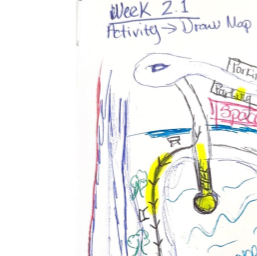 Week 2.1
Activity → Draw Map
Parkin
Parking
Spot